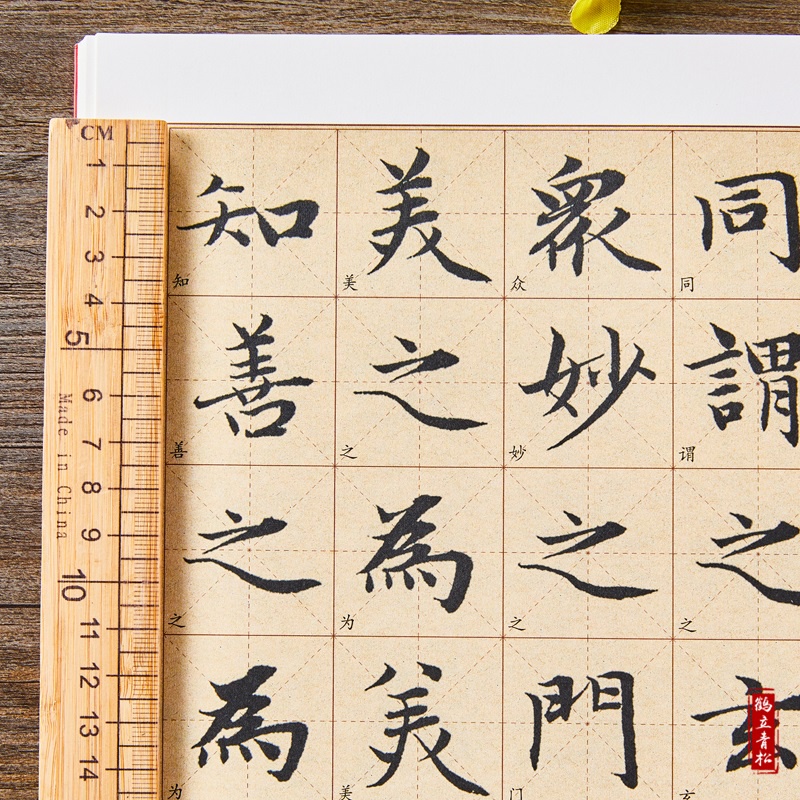 同謂之玄
同谓之玄
衆妙之門
众妙之门
美之為美
美之为美
知善之為
知善之为
CM
1
2
3
4
5
6
7
8
9
10
11
12
13
14
Made in China
鹤立青松